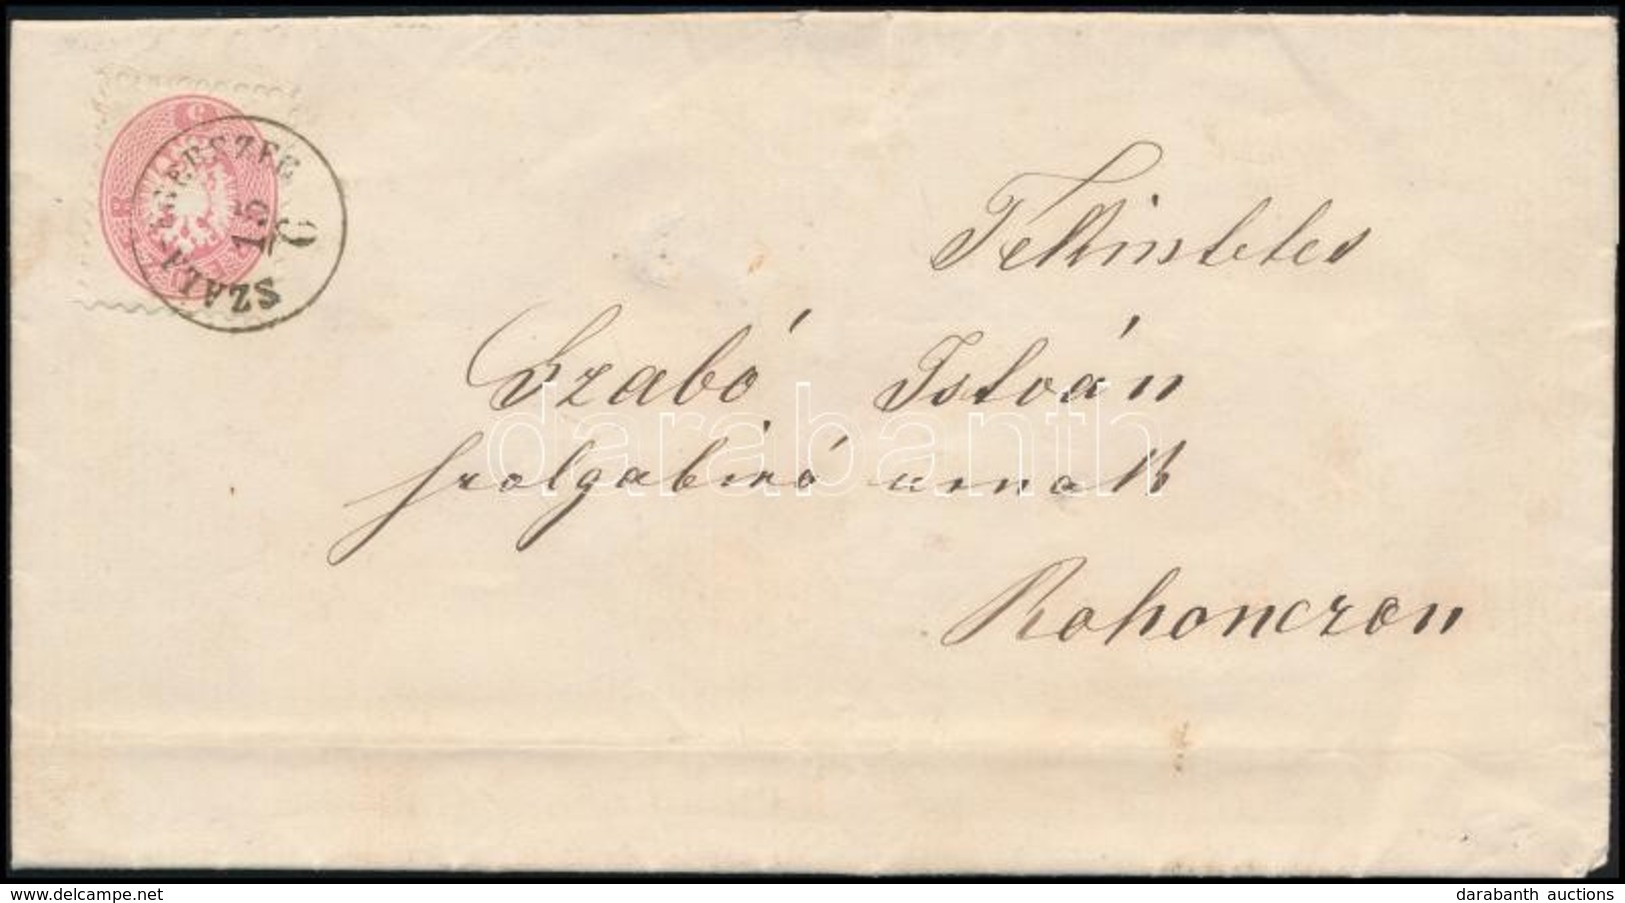 SZALA-EGERSZEG
15
6
Tekintetes
Szabó István
szolgabiró urnak
Rohonczon
darabanth
delcampe.net
darabanth auctions